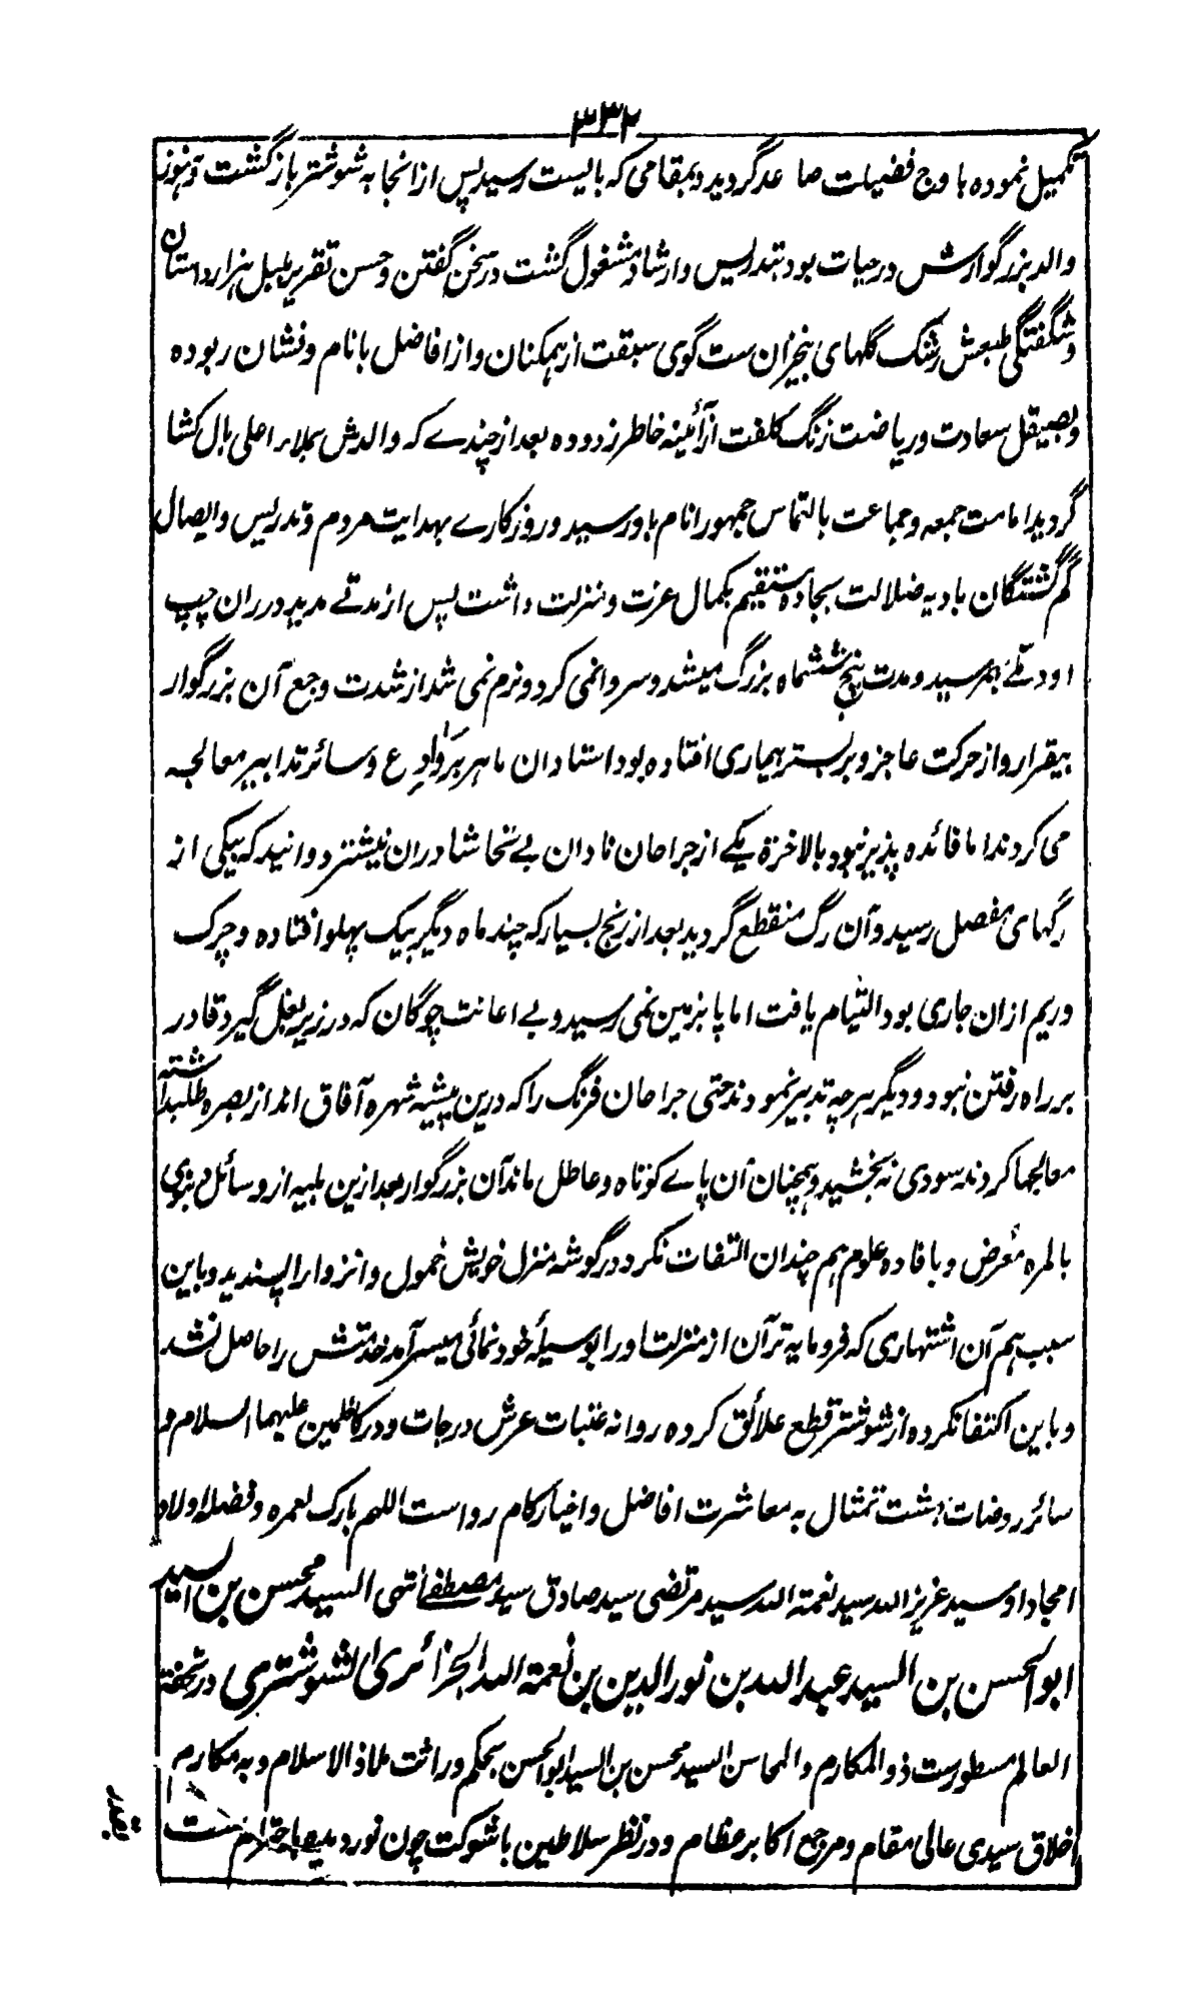 ۳۳۲
تکمیل نموده باوج فضیلت صاعد گردید و بمقامی که بالیست رسید پس از انجا به شوشتر بازگشت و هنوز
والد بزرگوارش در حیات بود بتدریس و ارشاد مشغول گشت در سخن گفتن و حسن تقریر بلبل هزار داستان
و شگفتگی طبعش رشک گلهای بیخزان ست گوی سبقت از همکنان و از افاضل با نام و نشان ربوده
و بصیقل سعادت و ریاضت زنگ کلفت از آئینه خاطر زدوده بعد از چندے که والدش بملاء اعلی بال کشا
گردید امامت جمعه و جماعت بالتماس جمهور انام باو رسید و روزگارے بهدایت مردم و تدریس و ایصال
گم گشتگان بادیه ضلالت بجاده مستقیم بکمال عزت و منزلت داشت پس از مدتے مدید در ران چپ
او دملے بهمرسید و مدت پنج ششماه بزرگ میشد و سر وانمی کرد و نرم نمی شد از شدت وجع آن بزرگوار
بیقرار و از حرکت عاجز و بر بستر بیماری افتاده بود استادان ماهر بروادع و سائر تدابیر معالجه
می کردند اما فائده پذیر نبود بالاخرة یکے از جراحان نادان بے تحاشا در ران نیشتر دوانید که بیکی از
رگهای مفصل رسید و آن رگ منقطع گردید بعد از رنج بسیار که چند ماه دیگر بیک پهلو افتاده و چرک
و ریم از ان جاری بود التیام یافت اما پا بزمین نمی رسید و بے اعانت چوگان که در زیر بغل گیرد قادر
بر راه رفتن نبود و دیگر هر چه تدبیر نمودند حتی جراحان فرنگ را که درین پیشه شهره آفاق اند از بصره طلبداشته
معالجها کردند سودی نه بخشید و همچنان آن پاے کوتاه و عاطل ماند آن بزرگوار بعد ازین بلیه از وسائل دنیوی
بالمره معرض و بافاده علوم هم چندان التفات نکرد و در گوشه منزل خویش خمول و انزوا را پسندید و باین
سبب هم آن اشتهاری که فرومایه تر آن از منزلت او را بوسیلۀ خود نمائی میسر آمد خدمتش را حاصل نشد
و باین اکتفا نکرده از شوشتر قطع علائق کرده روانه عتبات عرش درجات و در کاظمین علیهما السلام و
سائر روضات بهشت تمثال به معاشرت افاضل و اخیار کام رواست اللهم بارک لعمره و فضله اولاد
امجاد او سید عزیز الله سید نعمة الله سید مرتضی سید صادق سید مصطفے انتهی السید محسن بن السید
ابو الحسن بن السید عبد الله بن نور الدین بن نعمة الله الجزائری الشوشتری در تحفة
العالم مسطورست ذو المکارم و المحاسن السید محسن بن السید ابو الحسن بحکم وراثت ملاذ الاسلام و به مکارم
اخلاق سیدی عالی مقام و مرجع اکابر عظام و در نظر سلاطین با شوکت چون نور دیده با احترام ست